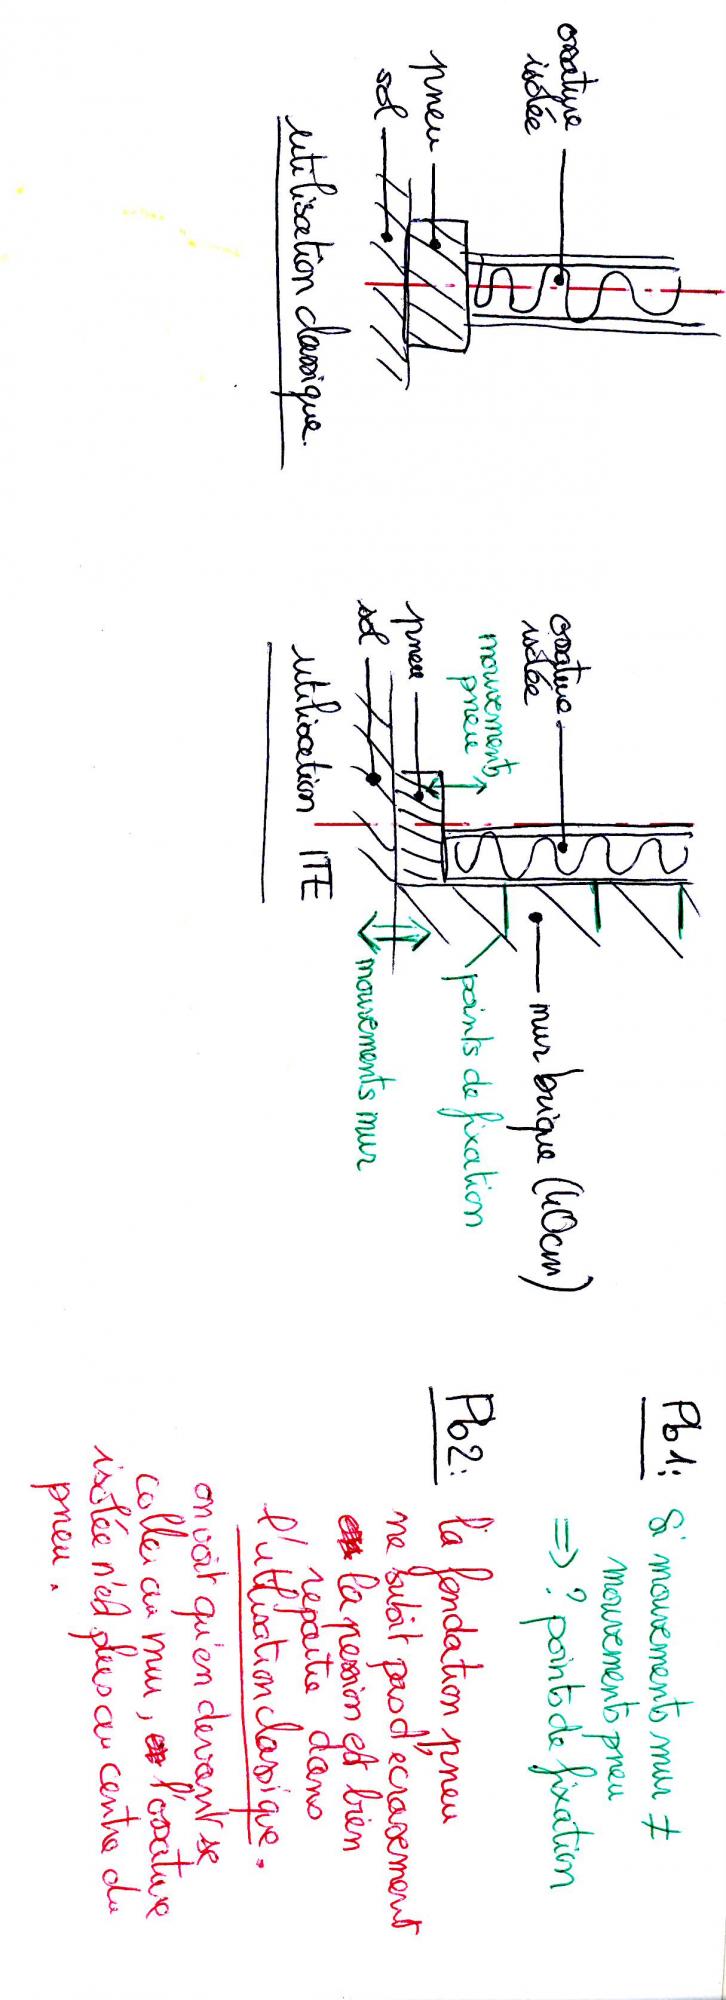 ossature
isolée
pneu
sol
utilisation classique.
ossature
isolée
mouvements
pneu
pneu
sol
utilisation ITE
mur brique (40cm)
points de fixation
mouvements mur
Pb1: Si mouvements mur ≠
mouvements pneu
=> ? points de fixation
Pb2: la fondation pneu
ne subit pas d'écrasement
la pression est bien
repartie dans
l'utilisation classique.
on voit qu'en devant se
coller au mur, l'ossature
isolée n'est plus au centre du
pneu.